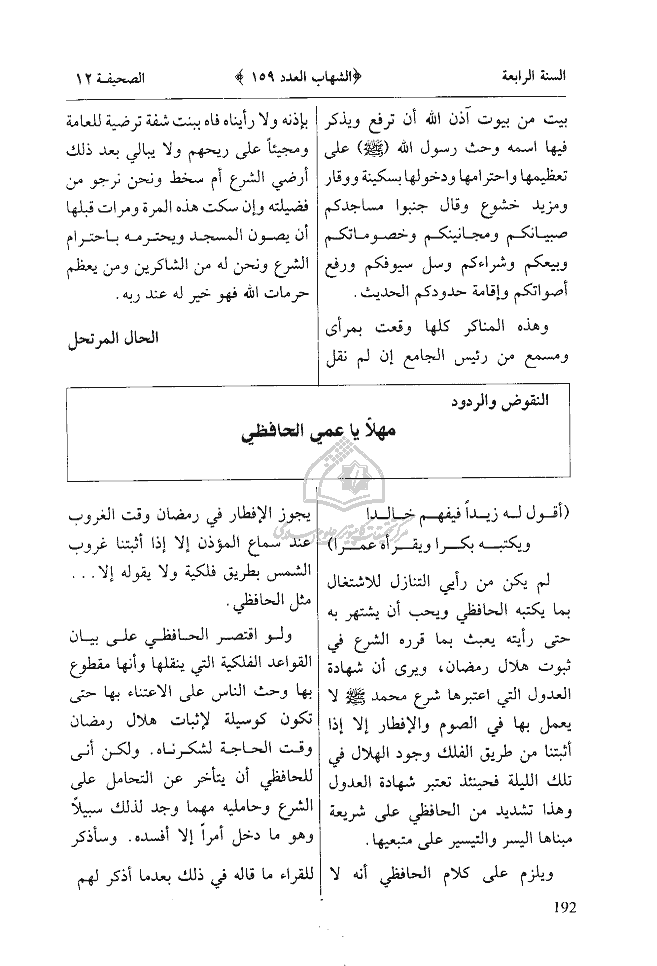 السنة الرابعة ﴿الشهاب العدد ١٥٩﴾ الصحيفة ١٢
بيت من بيوت آذن الله أن ترفع ويذكر
فيها اسمه وحث رسول الله (ﷺ) على
تعظيمها واحترامها ودخولها بسكينة ووقار
ومزيد خشوع وقال جنبوا مساجدكم
صبيانكم ومجانينكم وخصوماتكم
وبيعكم وشراءكم وسل سيوفكم ورفع
أصواتكم وإقامة حدودكم الحديث.
وهذه المناكر كلها وقعت بمرأى
ومسمع من رئيس الجامع إن لم نقل
بإذنه ولا رأيناه فاه ببنت شفة ترضية للعامة
ومجيئاً على ريحهم ولا يبالي بعد ذلك
أرضي الشرع أم سخط ونحن نرجو من
فضيلته وإن سكت هذه المرة ومرات قبلها
أن يصون المسجد ويحترمه باحترام
الشرع ونحن له من الشاكرين ومن يعظم
حرمات الله فهو خير له عند ربه.
الحال المرتحل
النقوض والردود
مهلاً يا عمي الحافظي
(أقول له زيداً فيفهم خالدا
ويكتبه بكرا ويقرأه عمرا)
لم يكن من رأيي التنازل للاشتغال
بما يكتبه الحافظي ويحب أن يشتهر به
حتى رأيته يعبث بما قرره الشرع في
ثبوت هلال رمضان، ويرى أن شهادة
العدول التي اعتبرها شرع محمد ﷺ لا
يعمل بها في الصوم والإفطار إلا إذا
أثبتنا من طريق الفلك وجود الهلال في
تلك الليلة فحينئذ تعتبر شهادة العدول
وهذا تشديد من الحافظي على شريعة
مبناها اليسر والتيسير على متبعيها.
ويلزم على كلام الحافظي أنه لا
يجوز الإفطار في رمضان وقت الغروب
عند سماع المؤذن إلا إذا أثبتنا غروب
الشمس بطريق فلكية ولا يقوله إلا...
مثل الحافظي.
ولو اقتصر الحافظي على بيان
القواعد الفلكية التي ينقلها وأنها مقطوع
بها وحث الناس على الاعتناء بها حتى
تكون كوسيلة لإثبات هلال رمضان
وقت الحاجة لشكرناه. ولكن أنى
للحافظي أن يتأخر عن التحامل على
الشرع وحامليه مهما وجد لذلك سبيلاً
وهو ما دخل أمراً إلا أفسده. وسأذكر
للقراء ما قاله في ذلك بعدما أذكر لهم
192